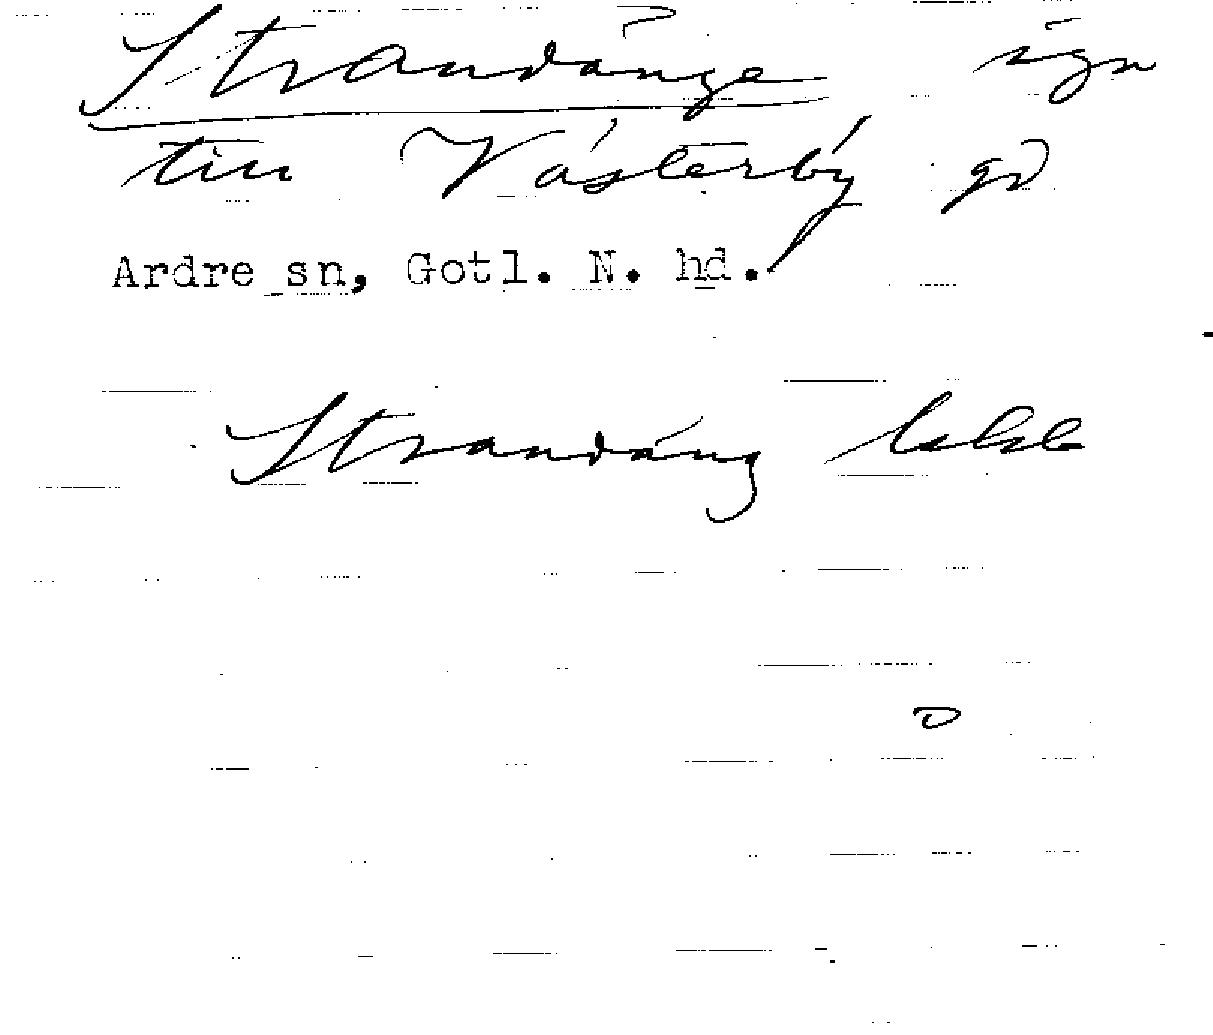 Strandänge ägn
till Västerby gd
Ardre sn, Gotl. N. hd.
Strandäng